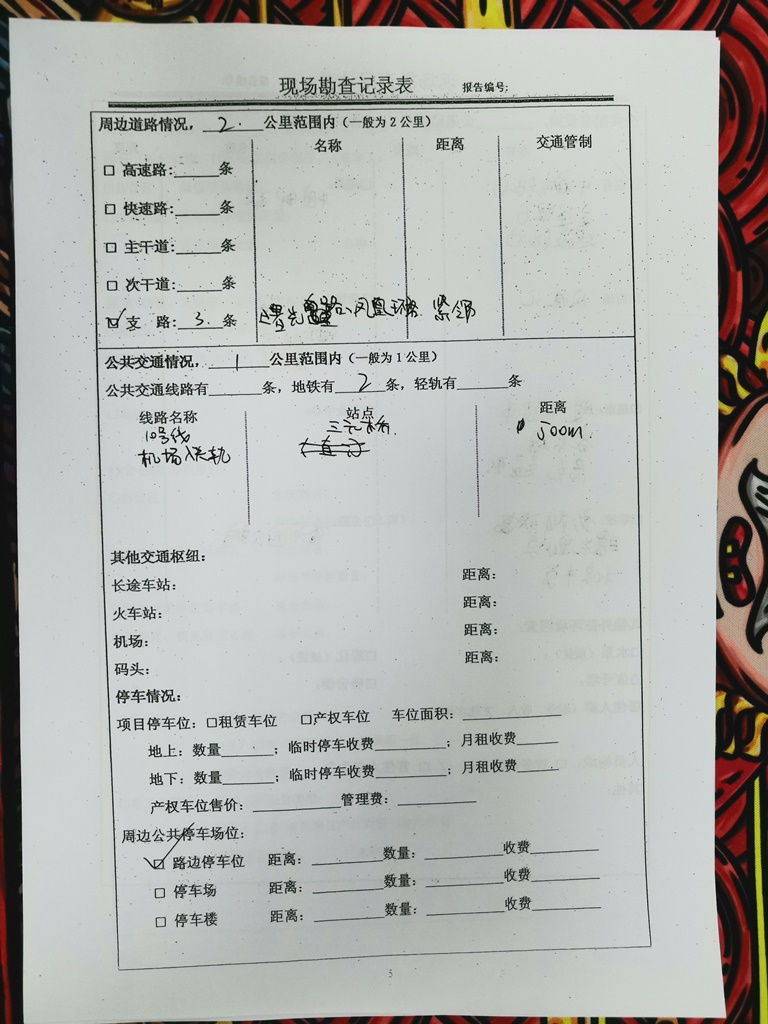 现场勘查记录表 报告编号:
周边道路情况，2.公里范围内（一般为2公里）
名称 距离 交通管制
□ 高速路:______条
□ 快速路:______条
□ 主干道:______条
□ 次干道:______条
☑ 支 路: 3. 条 曙光 路、凤凰 紧邻
公共交通情况，1公里范围内（一般为1公里）
公共交通线路有______条，地铁有 2 条，轻轨有______条
线路名称 站点 距离
10号线 三元桥 500m
机场快轨
其他交通枢纽:
长途车站: 距离:
火车站: 距离:
机场: 距离:
码头: 距离:
停车情况:
项目停车位: □租赁车位 □产权车位 车位面积:______
地上: 数量______; 临时停车收费______; 月租收费______
地下: 数量______; 临时停车收费______; 月租收费______
产权车位售价:______管理费:______
周边公共停车场位:
☑ 路边停车位 距离:______数量:______收费______
□ 停车场 距离:______数量:______收费______
□ 停车楼 距离:______数量:______收费______
5